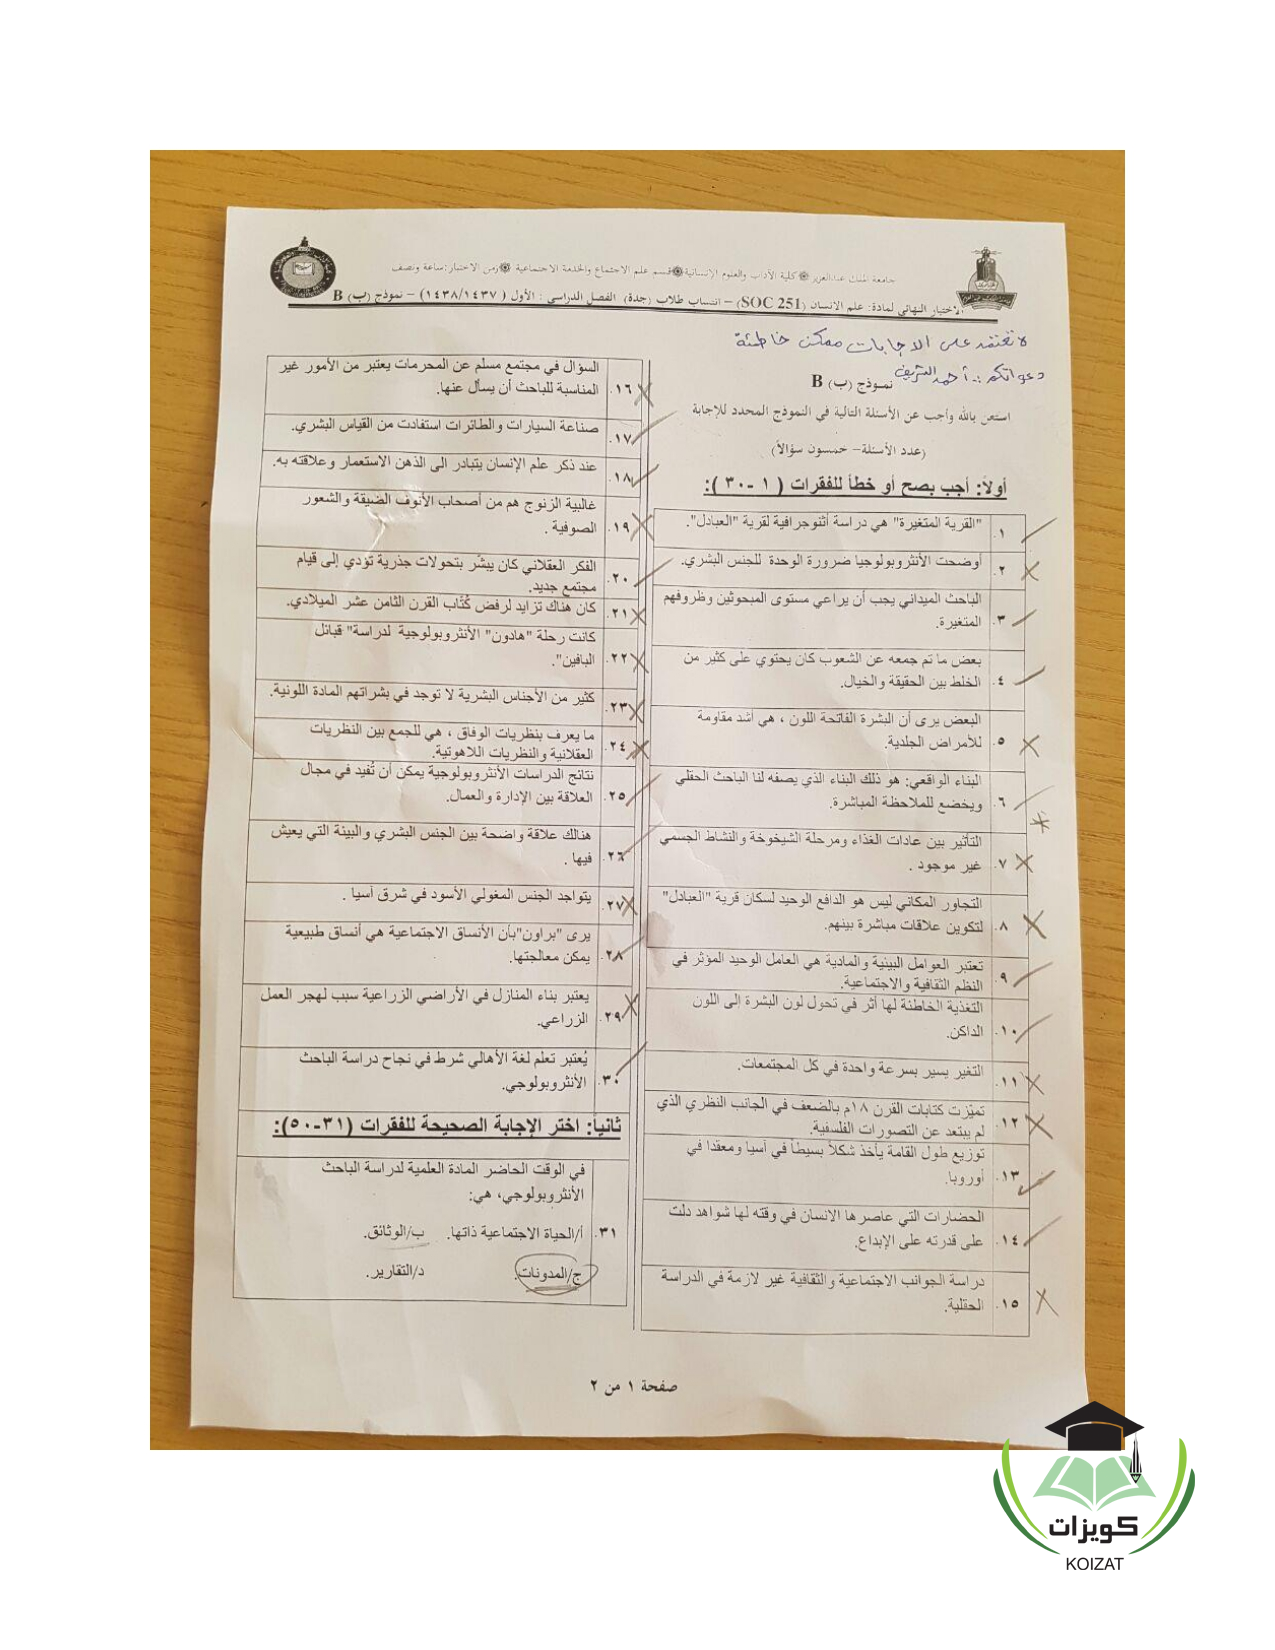 جامعة الملك عبدالعزيز ۞ كلية الآداب والعلوم الإنسانية ۞ قسم علم الاجتماع والخدمة الاجتماعية ۞ زمن الاختبار: ساعة ونصف
الاختبار النهائي لمادة: علم الانسان (SOC 251) – انتساب طلاب (جدة) الفصل الدراسي: الأول ( ١٤٣٨/١٤٣٧) – نموذج (ب) B
لا تعتمد على الاجابات ممكن خاطئة
دعواتكم .. أحمد الشريف
نموذج (ب) B
استعن بالله وأجب عن الأسئلة التالية في النموذج المحدد للإجابة
(عدد الأسئلة– خمسون سؤالاً)
أولاً: أجب بصح أو خطأ للفقرات ( ١ -٣٠ ):
١. "القرية المتغيرة" هي دراسة أثنوجرافية لقرية "العبادل".
٢. أوضحت الأنثروبولوجيا ضرورة الوحدة للجنس البشري.
٣. الباحث الميداني يجب أن يراعي مستوى المبحوثين وظروفهم
المتغيرة.
٤. بعض ما تم جمعه عن الشعوب كان يحتوي على كثير من
الخلط بين الحقيقة والخيال.
٥. البعض يرى أن البشرة الفاتحة اللون ، هي أشد مقاومة
للأمراض الجلدية.
٦. البناء الواقعي: هو ذلك البناء الذي يصفه لنا الباحث الحقلي
ويخضع للملاحظة المباشرة.
٧. التأثير بين عادات الغذاء ومرحلة الشيخوخة والنشاط الجسمي
غير موجود .
٨. التجاور المكاني ليس هو الدافع الوحيد لسكان قرية "العبادل"
لتكوين علاقات مباشرة بينهم.
٩. تعتبر العوامل البيئية والمادية هي العامل الوحيد المؤثر في
النظم الثقافية والاجتماعية.
١٠. التغذية الخاطئة لها أثر في تحول لون البشرة إلى اللون
الداكن.
١١. التغير يسير بسرعة واحدة في كل المجتمعات.
١٢. تميّزت كتابات القرن ١٨م بالضعف في الجانب النظري الذي
لم يبتعد عن التصورات الفلسفية.
١٣. توزيع طول القامة يأخذ شكلاً بسيطاً في آسيا ومعقدا في
أوروبا.
١٤. الحضارات التي عاصرها الانسان في وقته لها شواهد دلت
على قدرته على الإبداع.
١٥. دراسة الجوانب الاجتماعية والثقافية غير لازمة في الدراسة
الحقلية.
١٦. السؤال في مجتمع مسلم عن المحرمات يعتبر من الأمور غير
المناسبة للباحث أن يسأل عنها.
١٧. صناعة السيارات والطائرات استفادت من القياس البشري.
١٨. عند ذكر علم الإنسان يتبادر الى الذهن الاستعمار وعلاقته به.
١٩. غالبية الزنوج هم من أصحاب الأنوف الضيقة والشعور
الصوفية .
٢٠. الفكر العقلاني كان يبشّر بتحولات جذرية تؤدي إلى قيام
مجتمع جديد.
٢١. كان هناك تزايد لرفض كُتَّاب القرن الثامن عشر الميلادي.
٢٢. كانت رحلة "هادون" الأنثروبولوجية لدراسة" قبائل
البافين".
٢٣. كثير من الأجناس البشرية لا توجد في بشراتهم المادة اللونية.
٢٤. ما يعرف بنظريات الوفاق ، هي للجمع بين النظريات
العقلانية والنظريات اللاهوتية.
٢٥. نتائج الدراسات الأنثروبولوجية يمكن أن تُفيد في مجال
العلاقة بين الإدارة والعمال.
٢٦. هنالك علاقة واضحة بين الجنس البشري والبيئة التي يعيش
فيها .
٢٧. يتواجد الجنس المغولي الأسود في شرق آسيا .
٢٨. يرى "براون"بأن الأنساق الاجتماعية هي أنساق طبيعية
يمكن معالجتها.
٢٩. يعتبر بناء المنازل في الأراضي الزراعية سبب لهجر العمل
الزراعي.
٣٠. يُعتبر تعلم لغة الأهالي شرط في نجاح دراسة الباحث
الأنثروبولوجي.
ثانياً: اختر الإجابة الصحيحة للفقرات (٣١-٥٠):
في الوقت الحاضر المادة العلمية لدراسة الباحث
الأنثروبولوجي، هي:
٣١. أ/الحياة الاجتماعية ذاتها. ب/الوثائق.
ج/المدونات. د/التقارير.
صفحة ١ من ٢
كويزات
KOIZAT